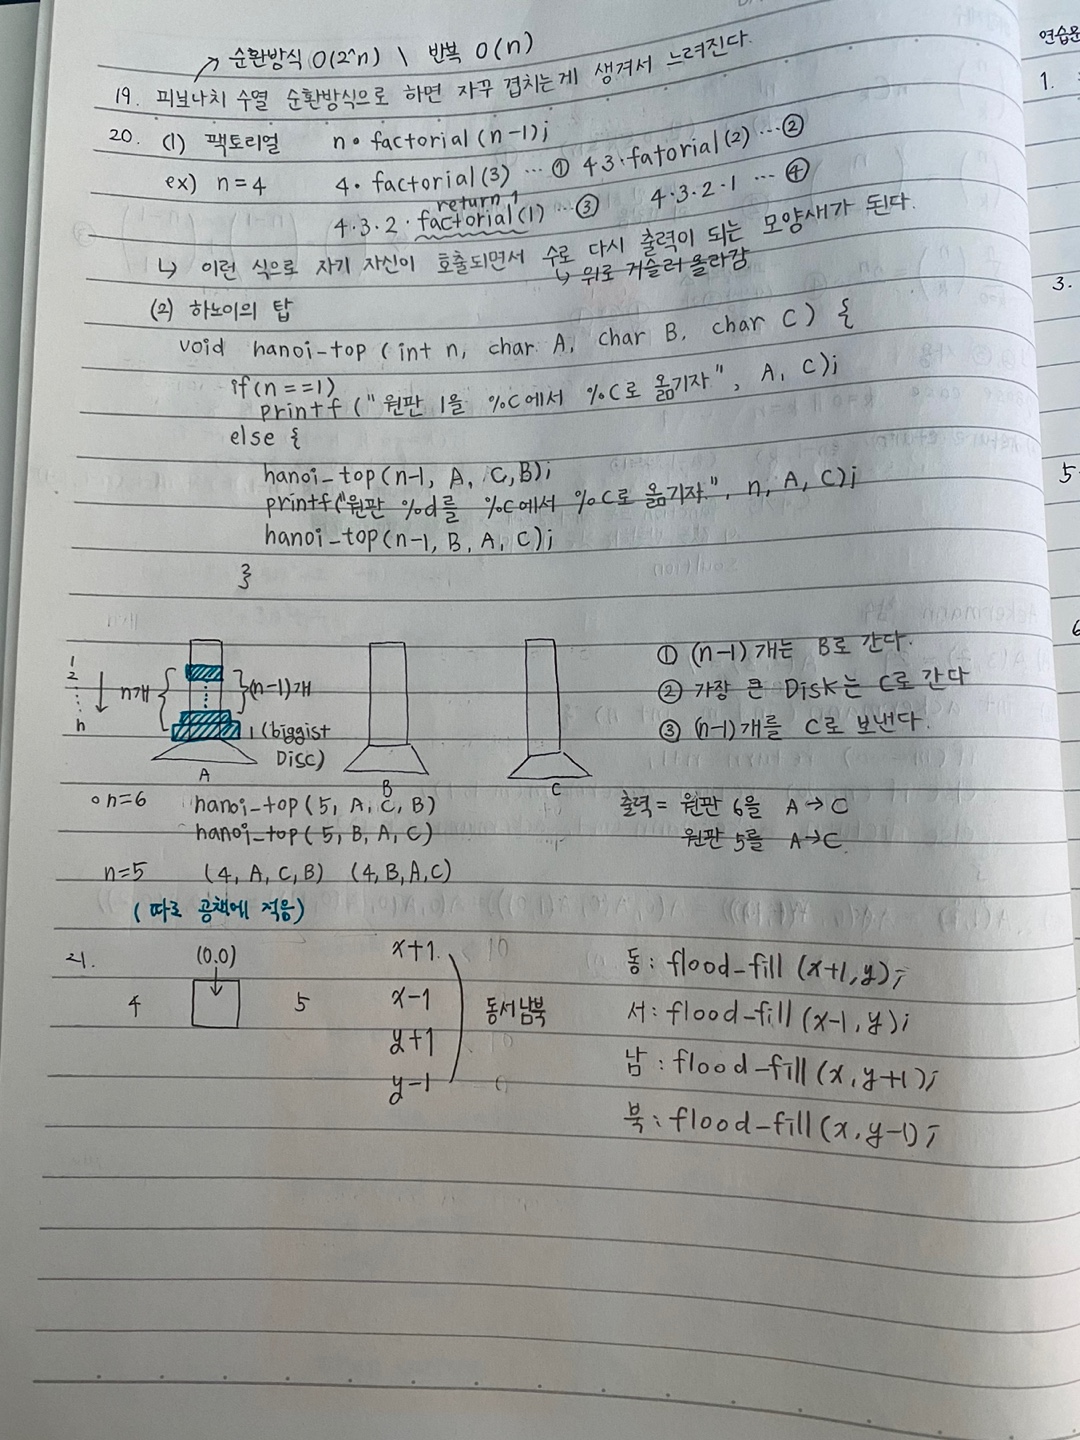 순환방식 O(2^n) \ 반복 O(n)
19. 피보나치 수열 순환방식으로 하면 자꾸 겹치는게 생겨서 느려진다.
20. (1) 팩토리얼 n • factorial (n-1);
ex) n=4 4 • factorial (3) … ① 4·3·fatorial (2) … ②
return 1
4·3·2· factorial (1) … ③ 4·3·2·1 … ④
↳ 이런 식으로 자기 자신이 호출되면서 수로 다시 출력이 되는 모양새가 된다.
↳ 위로 거슬러 올라감
(2) 하노이의 탑
void hanoi-top (int n, char A, char B, char C) {
if(n==1)
printf ("원판 1을 %c에서 %c로 옮기자", A, C);
else {
hanoi-top (n-1, A, C, B);
printf("원판 %d를 %c에서 %c로 옮기자", n, A, C);
hanoi-top (n-1, B, A, C);
}
1
2
n
n개
(n-1)개
1 (biggist
Disc)
A
B
C
① (n-1) 개는 B로 간다.
② 가장 큰 Disk는 C로 간다
③ (n-1)개를 C로 보낸다.
∘ n=6 hanoi-top (5, A, C, B) 출력 = 원판 6을 A → C
hanoi-top (5, B, A, C) 원판 5를 A → C
n=5 (4, A, C, B) (4, B, A, C)
(따로 공책에 적음)
21. (0.0)
4 5
x+1
x-1
y+1
y-1
동서남북
동: flood-fill (x+1, y);
서: flood-fill (x-1, y);
남: flood-fill (x, y+1);
북: flood-fill (x, y-1);
1.
3.
5
6